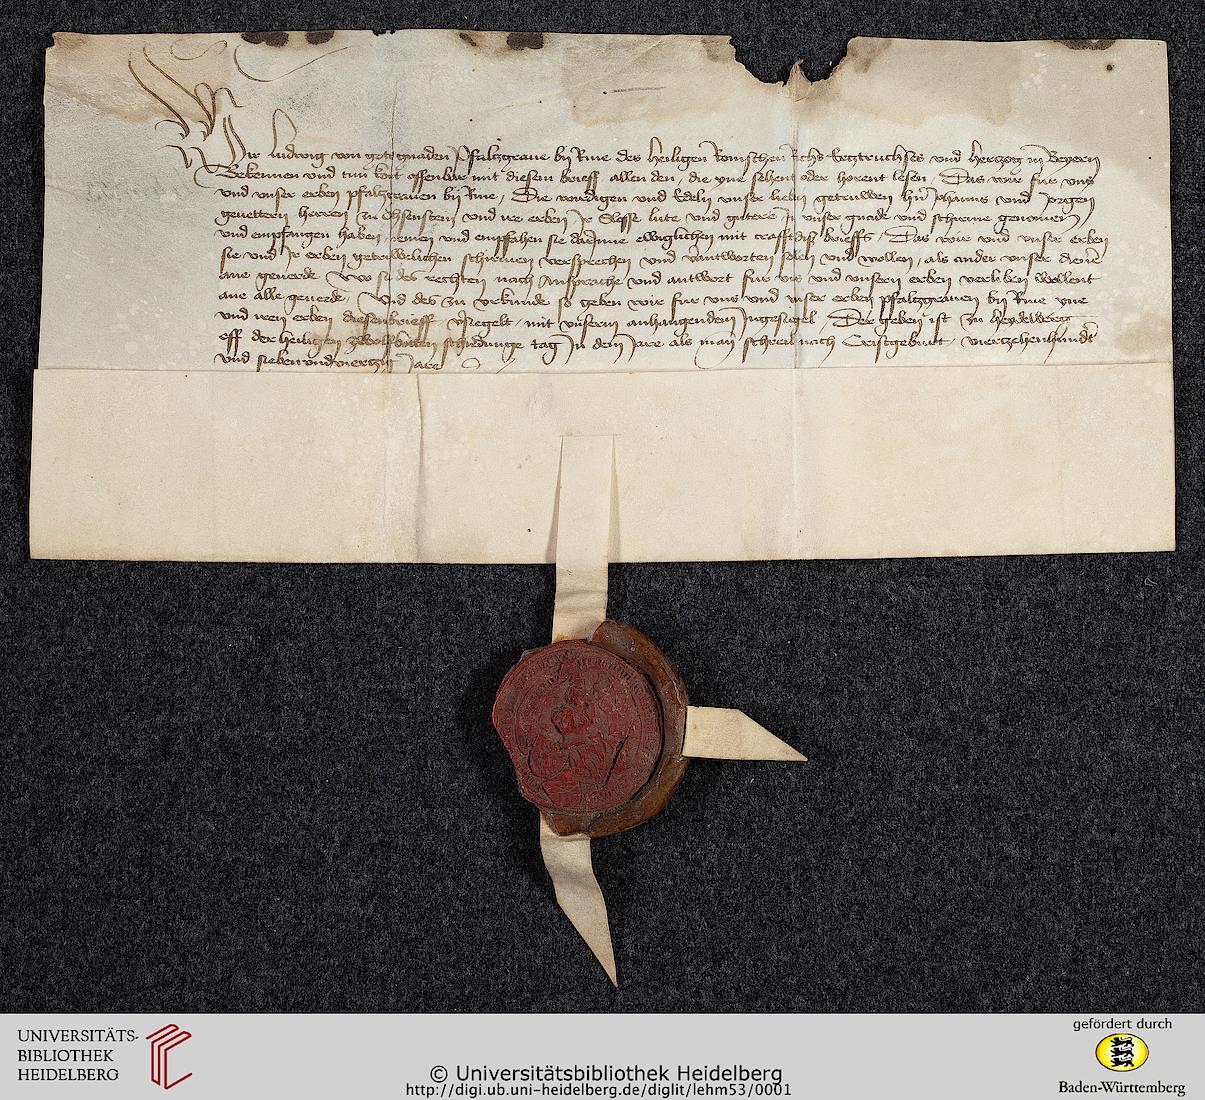 Wir ludwig von gots gnaden Pfaltzgraue bij Rine des heiligen Romischen Richs Ertztruchses und hertzog in Beyern
Bekennen und tun kont offenbar mit diesem brieff allen den, die yne sehent oder horent lesen, Das wir fur uns
und unser erben pfaltzgrauen bij Rine, Die wirdigen und Edeln unser lieben getruwen hern Johanns und Jorgen
geuettern herren zu Ohsenstein und ire erben Ir Slosse lute und gutere In unser gnade und schirme genomen
und empfangen haben nemen und empfahen sie darinne ewiglichen mit crafft diß brieffs, Das wir und unser erben
sie und Ir erben getruwelichen schirmen versprechen und verantworten sollen und wollen, als ander unser diener
ane geuerde Wo sie des rechten nach Ansprache und antwort fur uns und unsern erben verliben wollent
ane alle geuerde, Und des zu urkunde so geben wir fur uns und unser erben pfaltzgrauen bij Rine yne
und iren erben diesen brieff versiegelt mit unserm anhangendem Ingesiegel, Der geben ist zu heydelberg
uff der heiligen zwolffbotten schidunge tag In dem Jare als man schreib nach Cristgeburt, viertzehenhundert
und siebenundviertzig Jare
UNIVERSITÄTS-
BIBLIOTHEK
HEIDELBERG
© Universitätsbibliothek Heidelberg
http://digi.ub.uni-heidelberg.de/diglit/lehm53/0001
gefördert durch
Baden-Württemberg